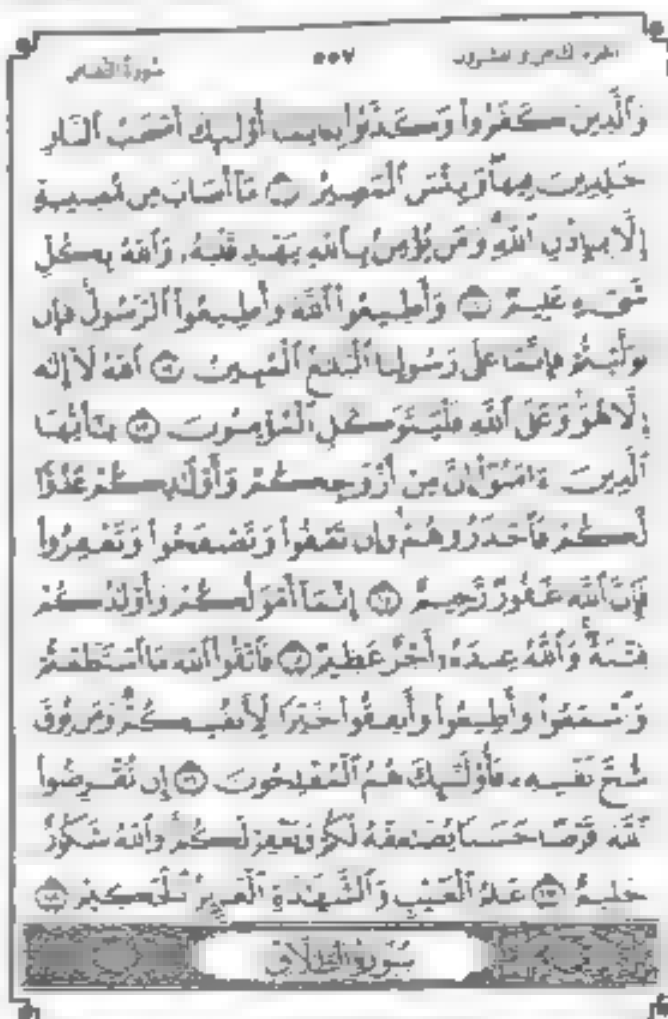 الجزء الثامن والعشرون ٥٥٧ سورة التغابن
وَٱلَّذِينَ كَفَرُوا۟ وَكَذَّبُوا۟ بِـَٔايَـٰتِنَآ أُو۟لَـٰٓئِكَ أَصْحَـٰبُ ٱلنَّارِ
خَـٰلِدِينَ فِيهَا وَبِئْسَ ٱلْمَصِيرُ ١٠ مَآ أَصَابَ مِن مُّصِيبَةٍ
إِلَّا بِإِذْنِ ٱللَّهِ وَمَن يُؤْمِنۢ بِٱللَّهِ يَهْدِ قَلْبَهُۥ وَٱللَّهُ بِكُلِّ
شَىْءٍ عَلِيمٌ ١١ وَأَطِيعُوا۟ ٱللَّهَ وَأَطِيعُوا۟ ٱلرَّسُولَ فَإِن
تَوَلَّيْتُمْ فَإِنَّمَا عَلَىٰ رَسُولِنَا ٱلْبَلَـٰغُ ٱلْمُبِينُ ١٢ ٱللَّهُ لَآ إِلَـٰهَ
إِلَّا هُوَ وَعَلَى ٱللَّهِ فَلْيَتَوَكَّلِ ٱلْمُؤْمِنُونَ ١٣ يَـٰٓأَيُّهَا
ٱلَّذِينَ ءَامَنُوٓا۟ إِنَّ مِنْ أَزْوَٰجِكُمْ وَأَوْلَـٰدِكُمْ عَدُوًّا
لَّكُمْ فَٱحْذَرُوهُمْ وَإِن تَعْفُوا۟ وَتَصْفَحُوا۟ وَتَغْفِرُوا۟
فَإِنَّ ٱللَّهَ غَفُورٌ رَّحِيمٌ ١٤ إِنَّمَآ أَمْوَٰلُكُمْ وَأَوْلَـٰدُكُمْ
فِتْنَةٌ وَٱللَّهُ عِندَهُۥٓ أَجْرٌ عَظِيمٌ ١٥ فَٱتَّقُوا۟ ٱللَّهَ مَا ٱسْتَطَعْتُمْ
وَٱسْمَعُوا۟ وَأَطِيعُوا۟ وَأَنفِقُوا۟ خَيْرًا لِّأَنفُسِكُمْ وَمَن يُوقَ
شُحَّ نَفْسِهِۦ فَأُو۟لَـٰٓئِكَ هُمُ ٱلْمُفْلِحُونَ ١٦ إِن تُقْرِضُوا۟
ٱللَّهَ قَرْضًا حَسَنًا يُضَـٰعِفْهُ لَكُمْ وَيَغْفِرْ لَكُمْ وَٱللَّهُ شَكُورٌ
حَلِيمٌ ١٧ عَـٰلِمُ ٱلْغَيْبِ وَٱلشَّهَـٰدَةِ ٱلْعَزِيزُ ٱلْحَكِيمُ ١٨
سورة الطلاق